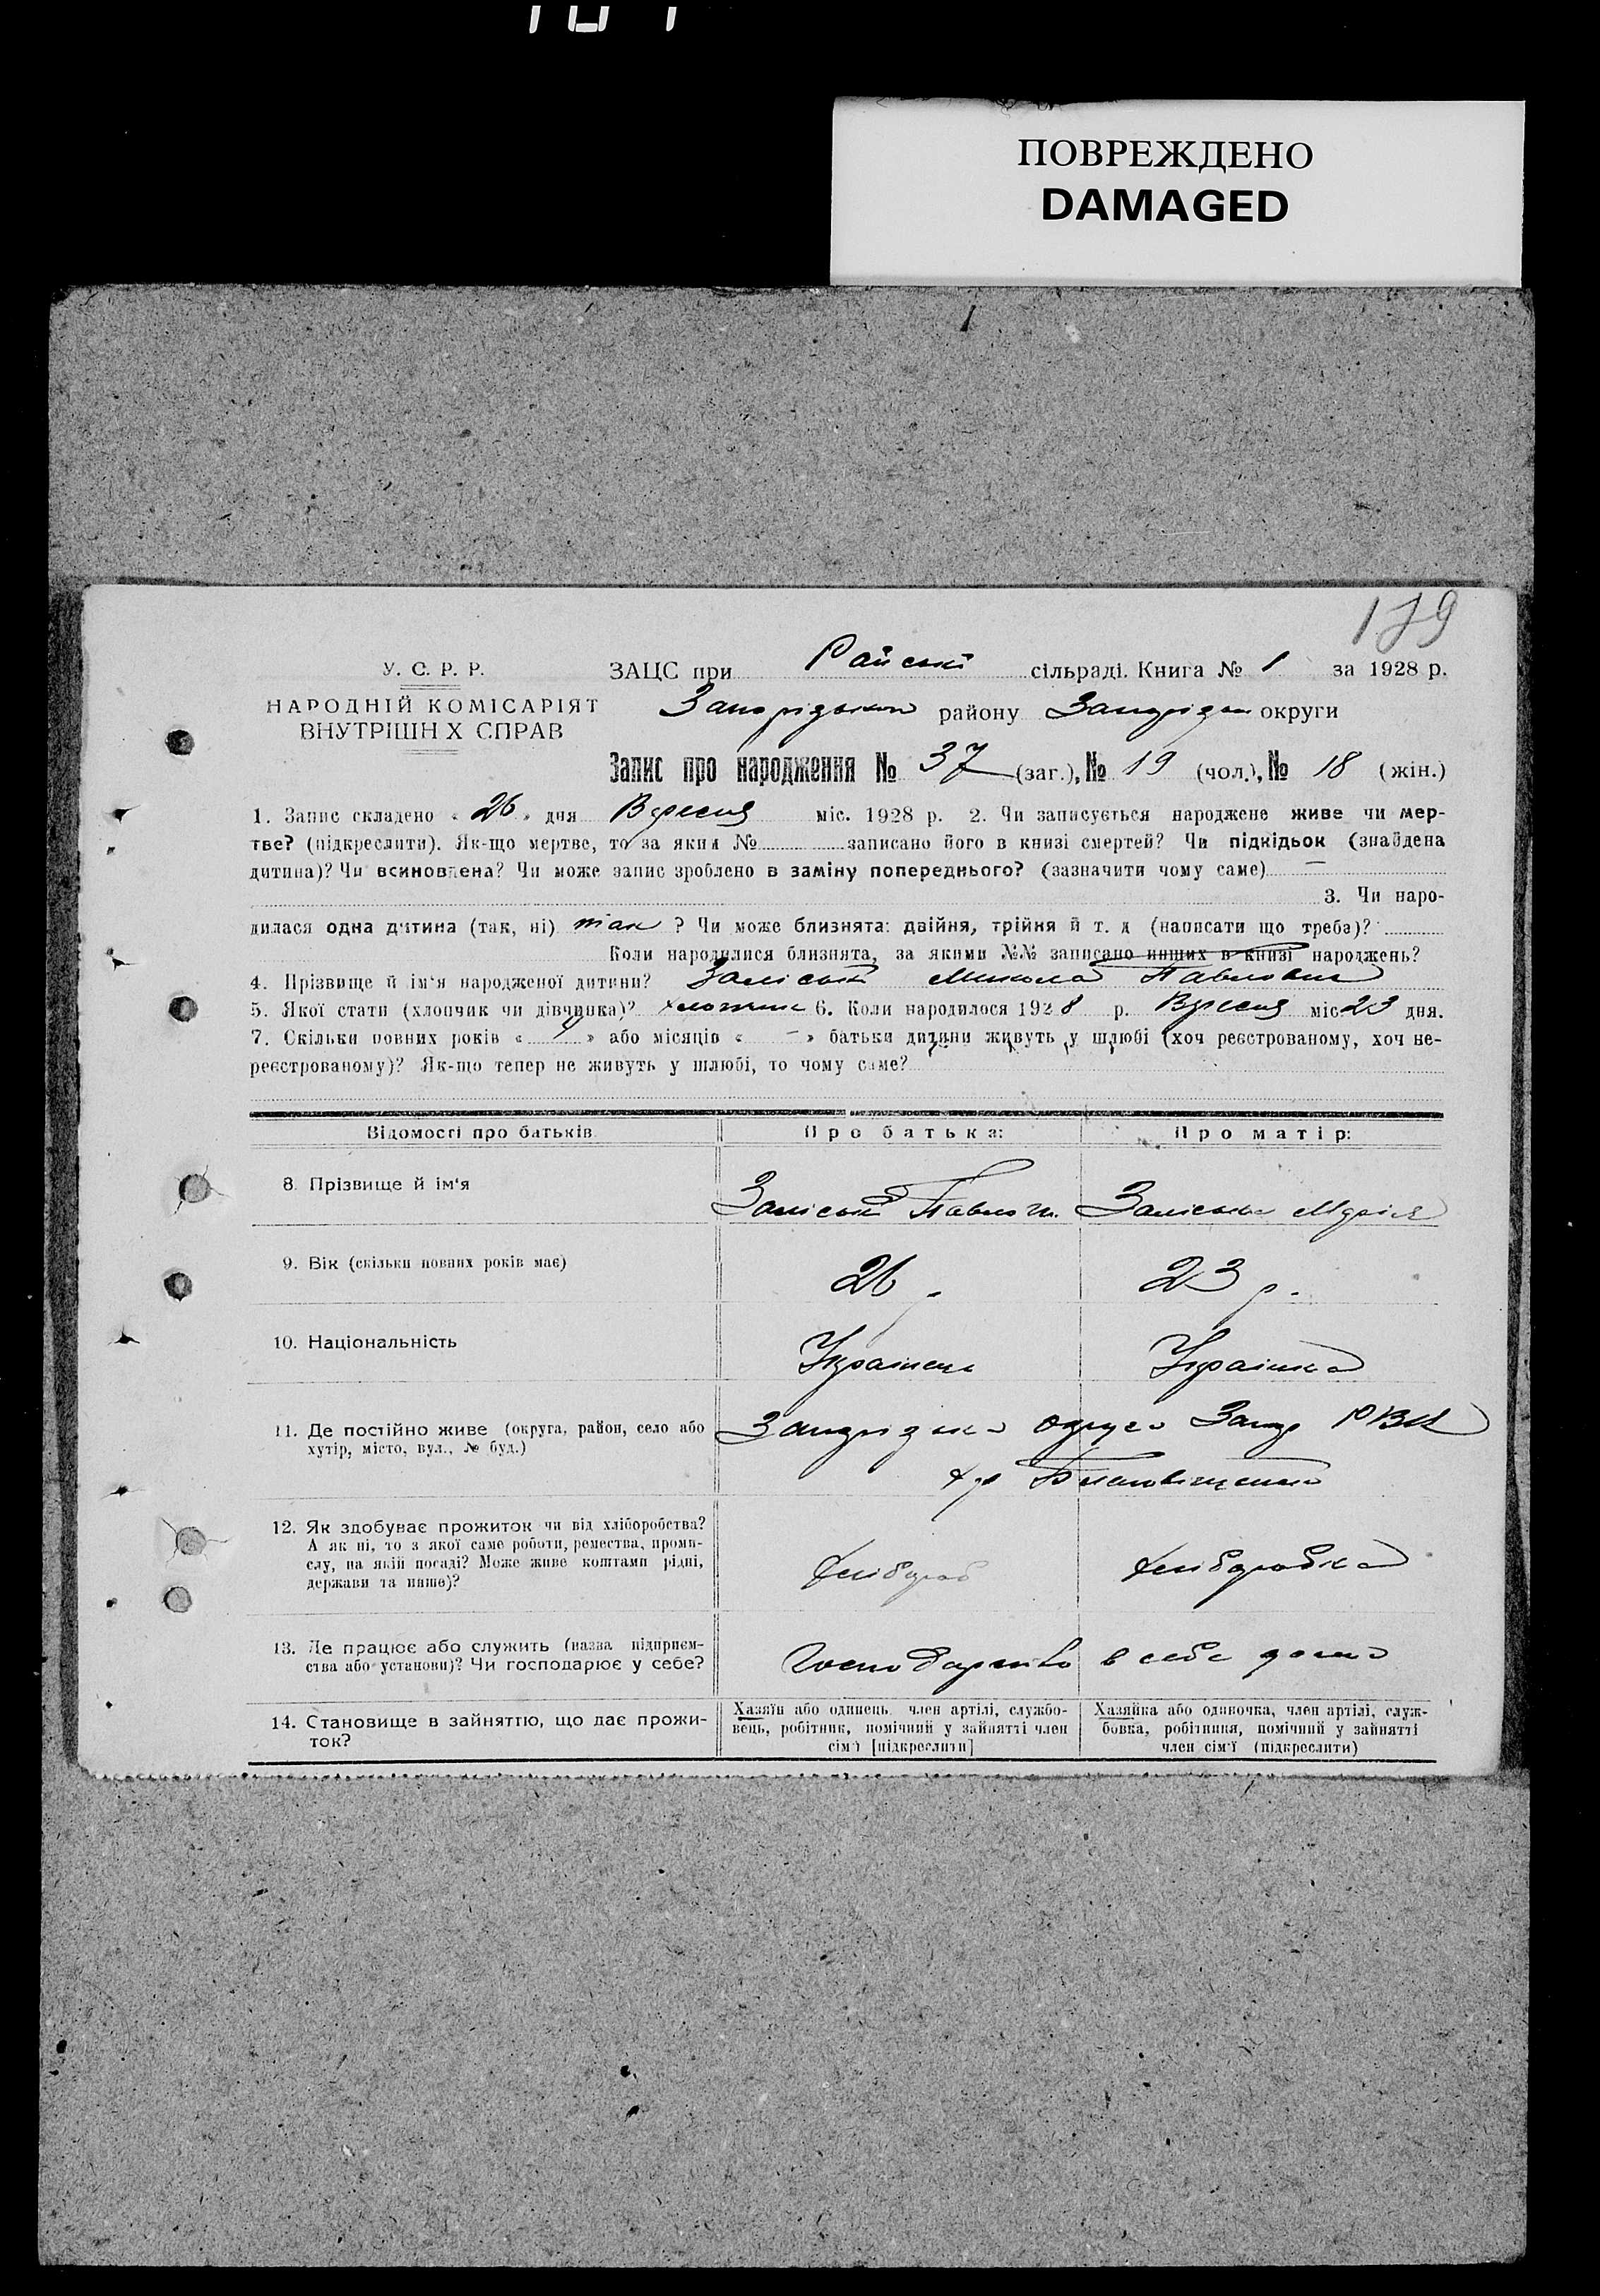 ПОВРЕЖДЕНО
DAMAGED
179
У. С. Р. Р.
НАРОДНІЙ КОМІСАРІЯТ
ВНУТРІШН Х СПРАВ
ЗАЦС при Райські сільраді. Книга № 1 за 1928 р.
району округи
Запис про народження № 37 (заг.), № 19 (чол.), № 18 (жін.)
1. Запис складено « 26 » дня Вересня міс. 1928 р. 2. Чи записується народжене живе чи мер-
тве? (підкреслити). Як-що мертве, то за яким № записано його в книзі смертей? Чи підкідьок (знайдена
дитина)? Чи всиновлена? Чи може запис зроблено в заміну попереднього? (зазначити чому саме) —
3. Чи наро-
дилася одна дитина (так, ні) так ? Чи може близнята: двійня, трійня й т. д (написати що треба)?
Коли народилися близнята, за якими №№ записано инших в книзі народжень?
4. Прізвище й ім'я народженої дитини? Заліський Микола Павлович
5. Якої стати (хлопчик чи дівчинка)? хлопчик 6. Коли народилося 1928 р. Вересня міс 23 дня.
7. Скільки повних років « » або місяців « — » батьки дитини живуть у шлюбі (хоч реєстрованому, хоч не-
реєстрованому)? Як-що тепер не живуть у шлюбі, то чому саме?
Відомості про батьків Про батька: Про матір:
8. Прізвище й ім'я Заліський Павло Заліська Марія
9. Вік (скільки повних років має) 26 р. 23 р.
10. Національність Українець Українка
11. Де постійно живе (округа, район, село або
хутір, місто, вул., № буд.)
Запорізька округа Запор РВК
х-р
12. Як здобуває прожиток чи від хліборобства?
А як ні, то з якої саме роботи, ремества, проми-
слу, на якій посаді? Може живе коштами рідні,
держави та инше)?
Хлібороб Хліборобка
13. Де працює або служить (назва підприєм-
ства або установи)? Чи господарює у себе?
в себе дома
14. Становище в зайняттю, що дає прожи-
ток?
Хазяїн або одинець, член артілі, службо-
вець, робітник, помічний у зайнятті член
сім'ї [підкреслити]
Хазяйка або одиночка, член артілі, служ-
бовка, робітниця, помічний у зайнятті
член сім'ї (підкреслити)